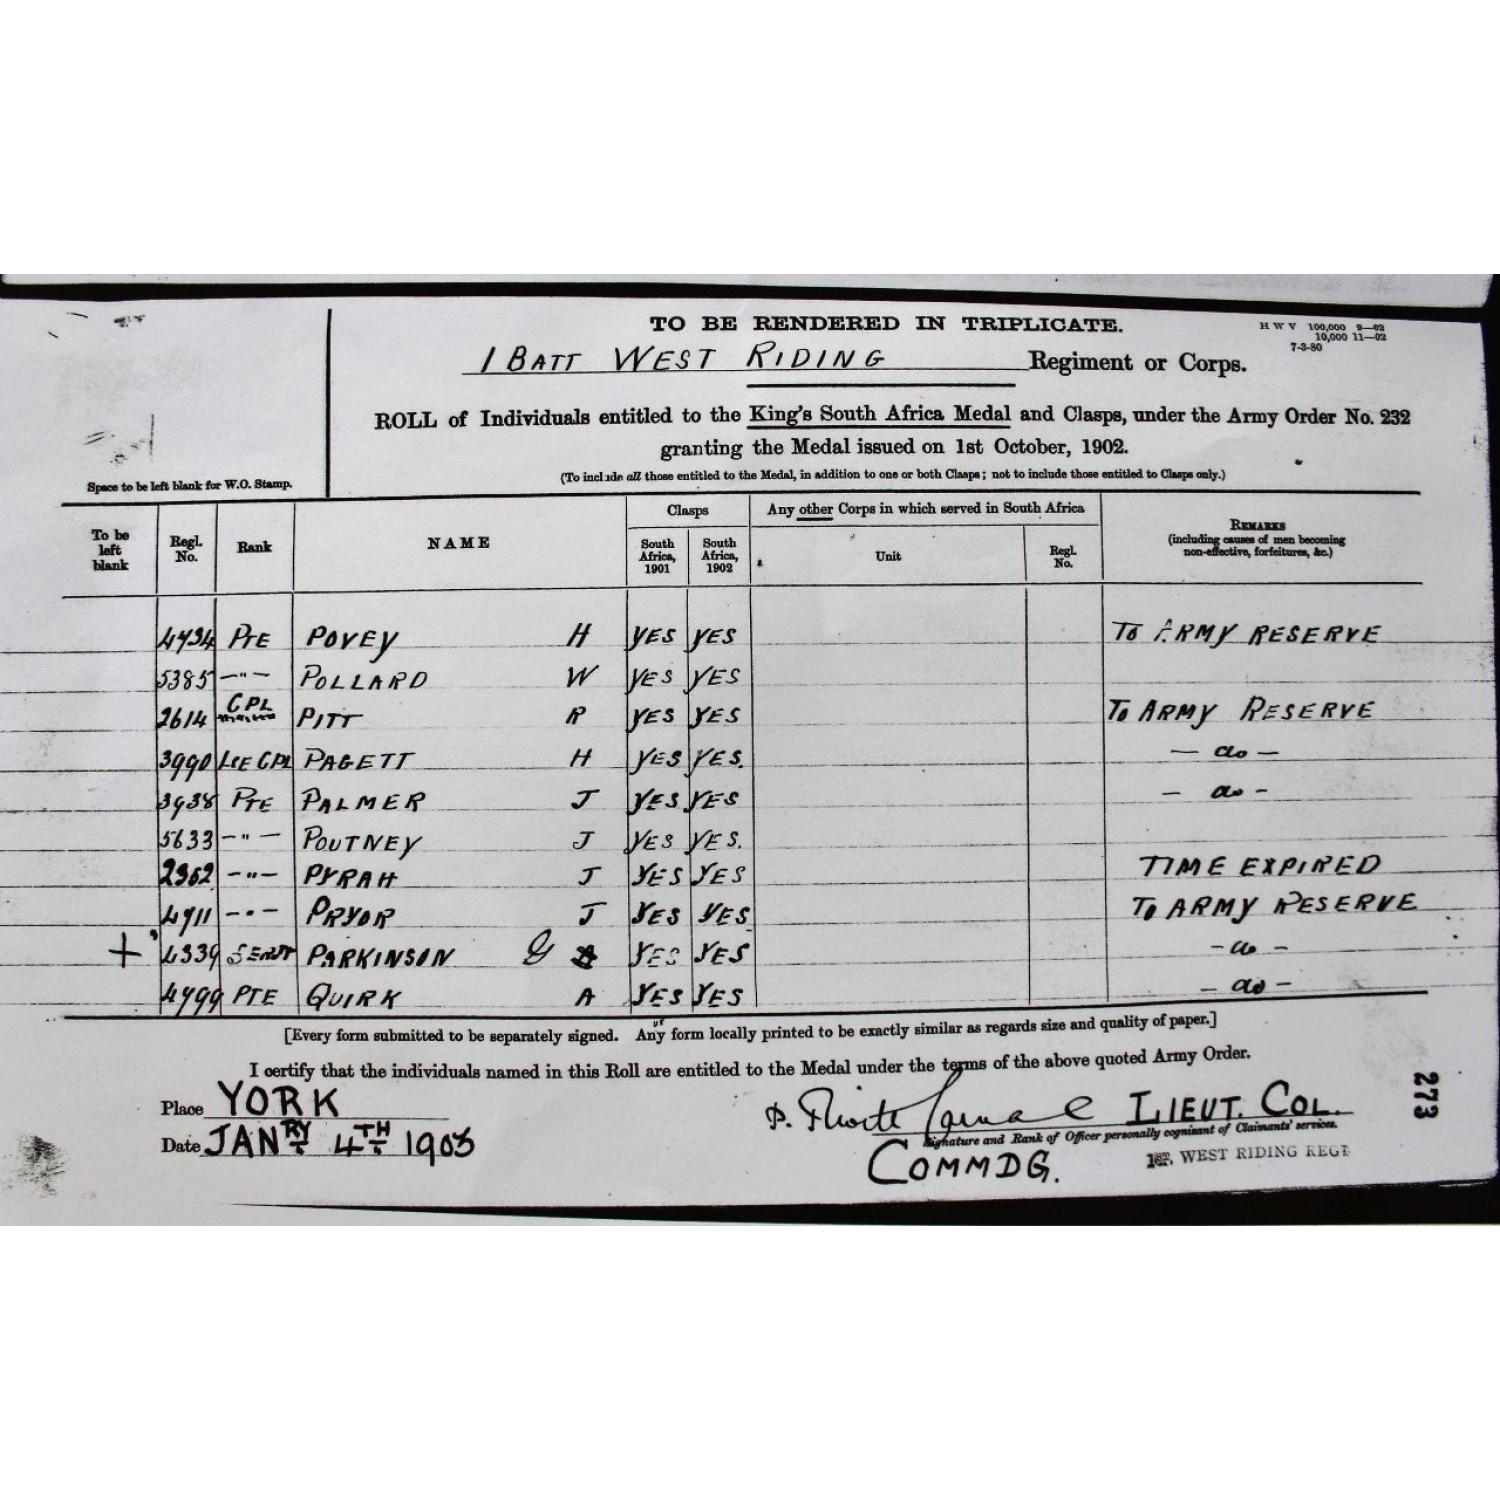 TO BE RENDERED IN TRIPLICATE.
H W V 100,000 9—02
10,000 11—02
7-3-80
1 BATT WEST RIDING Regiment or Corps.
ROLL of Individuals entitled to the King's South Africa Medal and Clasps, under the Army Order No. 232
granting the Medal issued on 1st October, 1902.
(To include all those entitled to the Medal, in addition to one or both Clasps; not to include those entitled to Clasps only.)
Space to be left blank for W.O. Stamp.
To be left blank Regl. No. Rank NAME Clasps South Africa, 1901 South Africa, 1902 Any other Corps in which served in South Africa Unit Regl. No. REMARKS (including causes of men becoming non-effective, forfeitures, &c.)
4734 PTE POVEY H YES YES TO ARMY RESERVE
5385 —"— POLLARD W YES YES
2614 CPL PITT R YES YES TO ARMY RESERVE
3990 LCE CPL PAGETT H YES YES. — do —
3938 PTE PALMER J YES YES — do -
5633 —"— POUTNEY J YES YES.
2362 -"- PYRAH J YES YES TIME EXPIRED
4711 -"- PRYOR J YES YES TO ARMY RESERVE
+ 4339 SERJT PARKINSON G YES YES - do -
4799 PTE QUIRK A YES YES - do -
[Every form submitted to be separately signed. Any form locally printed to be exactly similar as regards size and quality of paper.]
I certify that the individuals named in this Roll are entitled to the Medal under the terms of the above quoted Army Order.
Place YORK
LIEUT. COL.
Signature and Rank of Officer personally cognizant of Claimants' services.
Date JANRY 4TH 1903
COMMDG.
1ST. WEST RIDING REGT
273